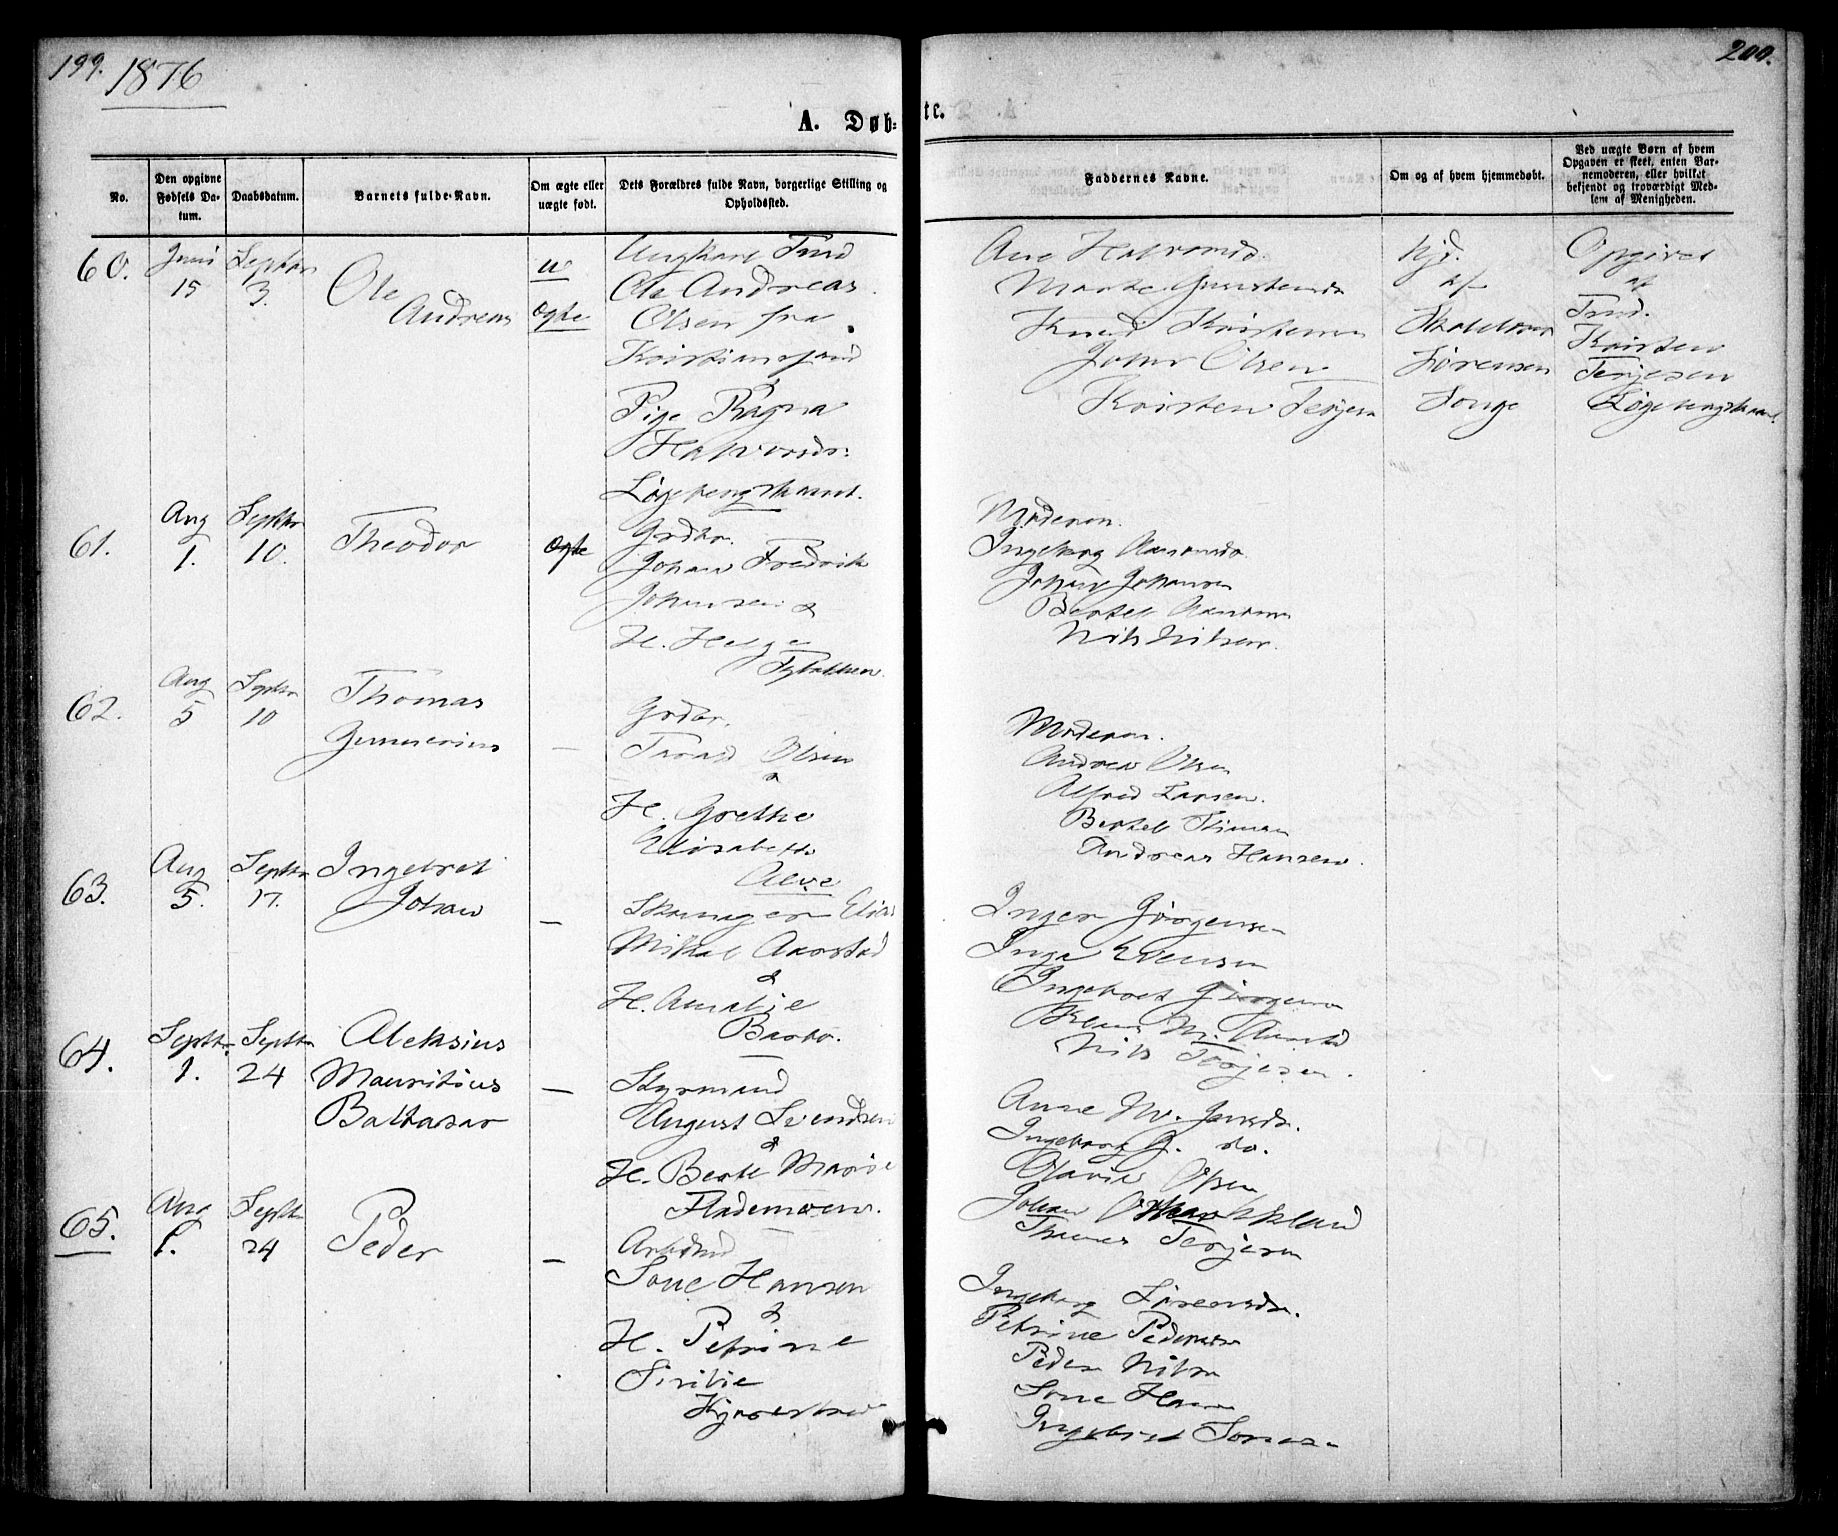 199. 1876
200.
A. Døb-
te.
No.
Den opgivne Fødsels Datum.
Daabsdatum.
Barnets fulde Navn.
Om ægte eller uægte født.
Dets Forældres fulde Navn, borgerlige Stilling og Opholdssted.
Faddernes Navne.
Om og af hvem hjemmedøbt.
Ved uægte Børn af hvem Opgaven er skeet, enten Barnemoderen, eller hvilket bekjendt og troværdigt Medlem af Menigheden.
60.
Juni 15
Septbr 3.
Ole
Andreas
u
Ogte
Ungkarl
Ole Andreas
Olsen fra
Kristianssand
&
Pige Ragna
Halvorsdr.
Ane Halvorsd.
Knud Kristensen
John Olsen
Kristen Terjesen
hjd.
af
Sørensen
Songe
Opgivet
af
Kristen
Terjesen
61.
Aug 1.
Septbr 10.
Theodor
Ogte
Grdbr.
Johan Fredrik
Johansen &
H. Helge
Moderen.
Ingeborg
Johan Johansen
Bertel
Nils Nilsen.
62.
Aug 5
Septbr 10
Thomas
Gunnerius
—
Grdbr.
Olsen
&
H. Grethe
Elisabeth
Moderen.
Andreas Olsen
Alfred Larsen.
Bertel
Andreas Hansen.
63.
Aug 5.
Septbr 17.
Ingebret
Johan
—
Elias
Mikal Aarstad
&
H. Amalie
Inger Jørgensen
Inga Evensen
Ingebret Jørgensen
Nils Terjesen.
64.
Septbr. 1.
Septbr 24
Aleksius
Mauritius
Baltasar
—
Styrmand
August Svendsen
&
H. Berte Marie
Flademoen.
Anne M. Jensdr.
Ingeborg G. do.
Olsen
Johan
Terjesen
65.
Aug 1.
Septbr 24
Peder
—
Arbdmd
Sone Hansen
&
H. Petrine
Sirilie
Ingeborg Sørensdr.
Petrine Pedersen
Peder Nilsen
Sone Hansen
Ingebret Sonesen